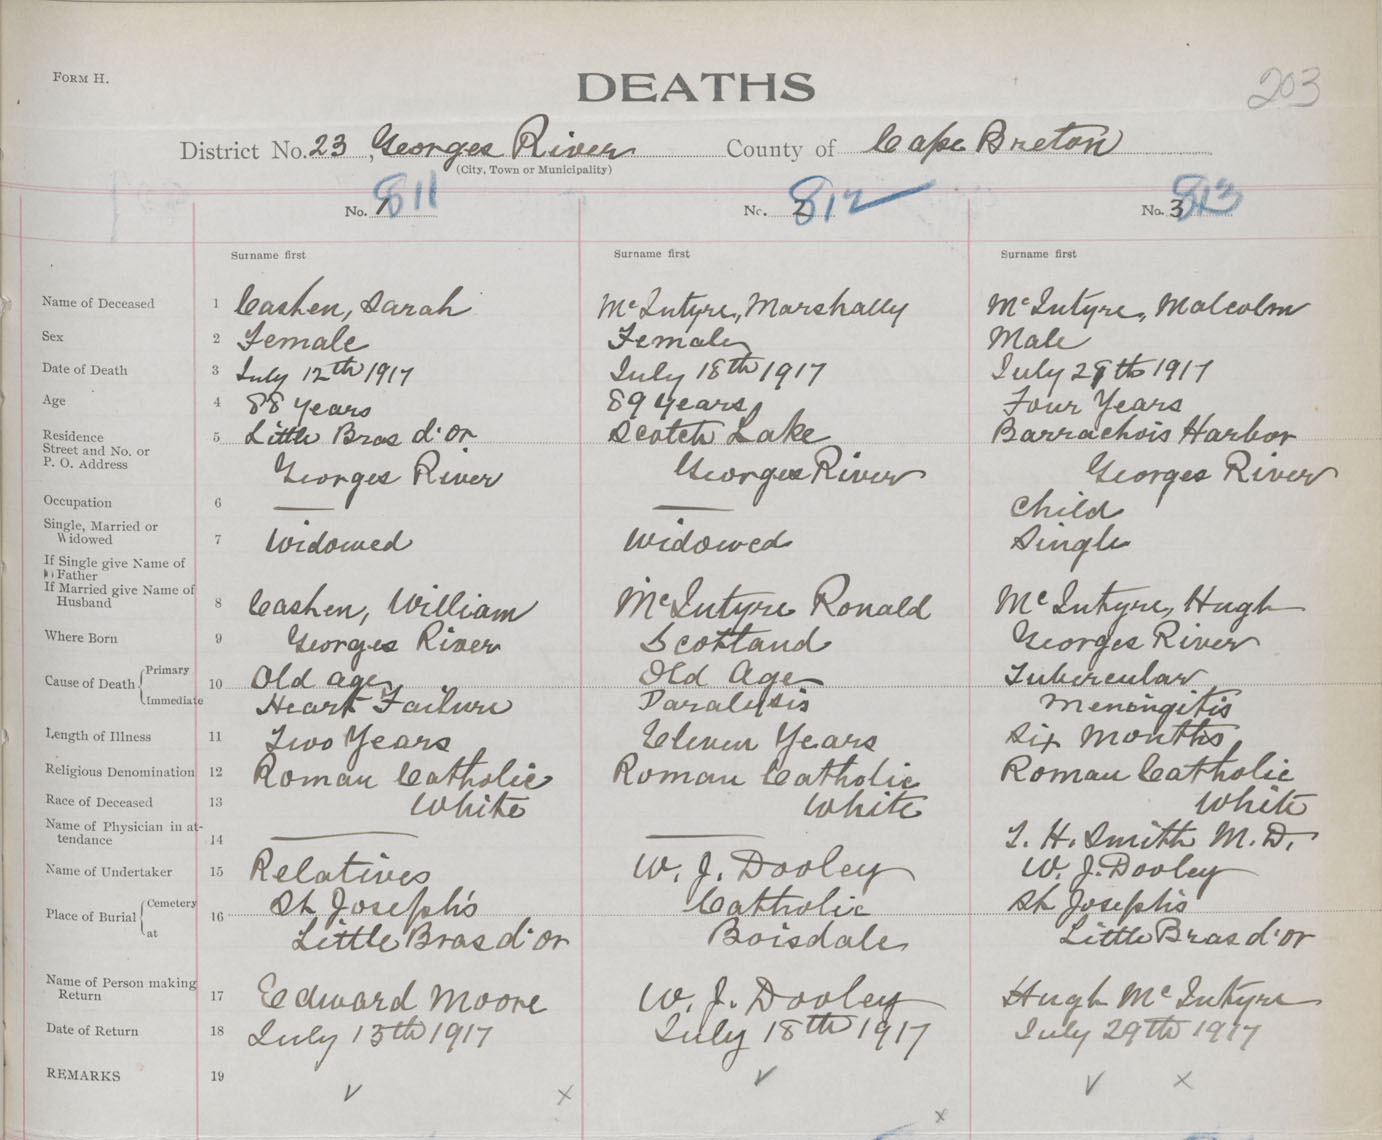 FORM H.
DEATHS
203
District No. 23, Georges River County of Cape Breton
(City, Town or Municipality)
No. 1 811 No. 2 812 No. 3 813
Surname first Surname first Surname first
Name of Deceased 1 Cashen, Sarah McIntyre, Marshally McIntyre, Malcolm
Sex 2 Female Female Male
Date of Death 3 July 12th 1917 July 18th 1917 July 28th 1917
Age 4 88 years 89 years Four Years
Residence Street and No. or P. O. Address 5 Little Bras d'or Scotch Lake Barrachois Harbor
Georges River Georges River Georges River
Occupation 6 — — Child
Single, Married or Widowed 7 Widowed Widowed Single
If Single give Name of Father
If Married give Name of Husband 8 Cashen, William McIntyre Ronald McIntyre, Hugh
Where Born 9 Georges River Scotland Georges River
Cause of Death { Primary 10 Old age Old Age Tubercular
Immediate Heart Failure Paralysis Meningitis
Length of Illness 11 Two Years Eleven Years Six Months
Religious Denomination 12 Roman Catholic Roman Catholic Roman Catholic
Race of Deceased 13 White White White
Name of Physician in attendance 14 — — T. H. Smith M.D.
Name of Undertaker 15 Relatives W. J. Dooley W. J. Dooley
Place of Burial { Cemetery 16 St Joseph's Catholic St Joseph's
at Little Bras d'or Boisdale Little Bras d'or
Name of Person making Return 17 Edward Moore W. J. Dooley Hugh McIntyre
Date of Return 18 July 13th 1917 July 18th 1917 July 29th 1917
REMARKS 19